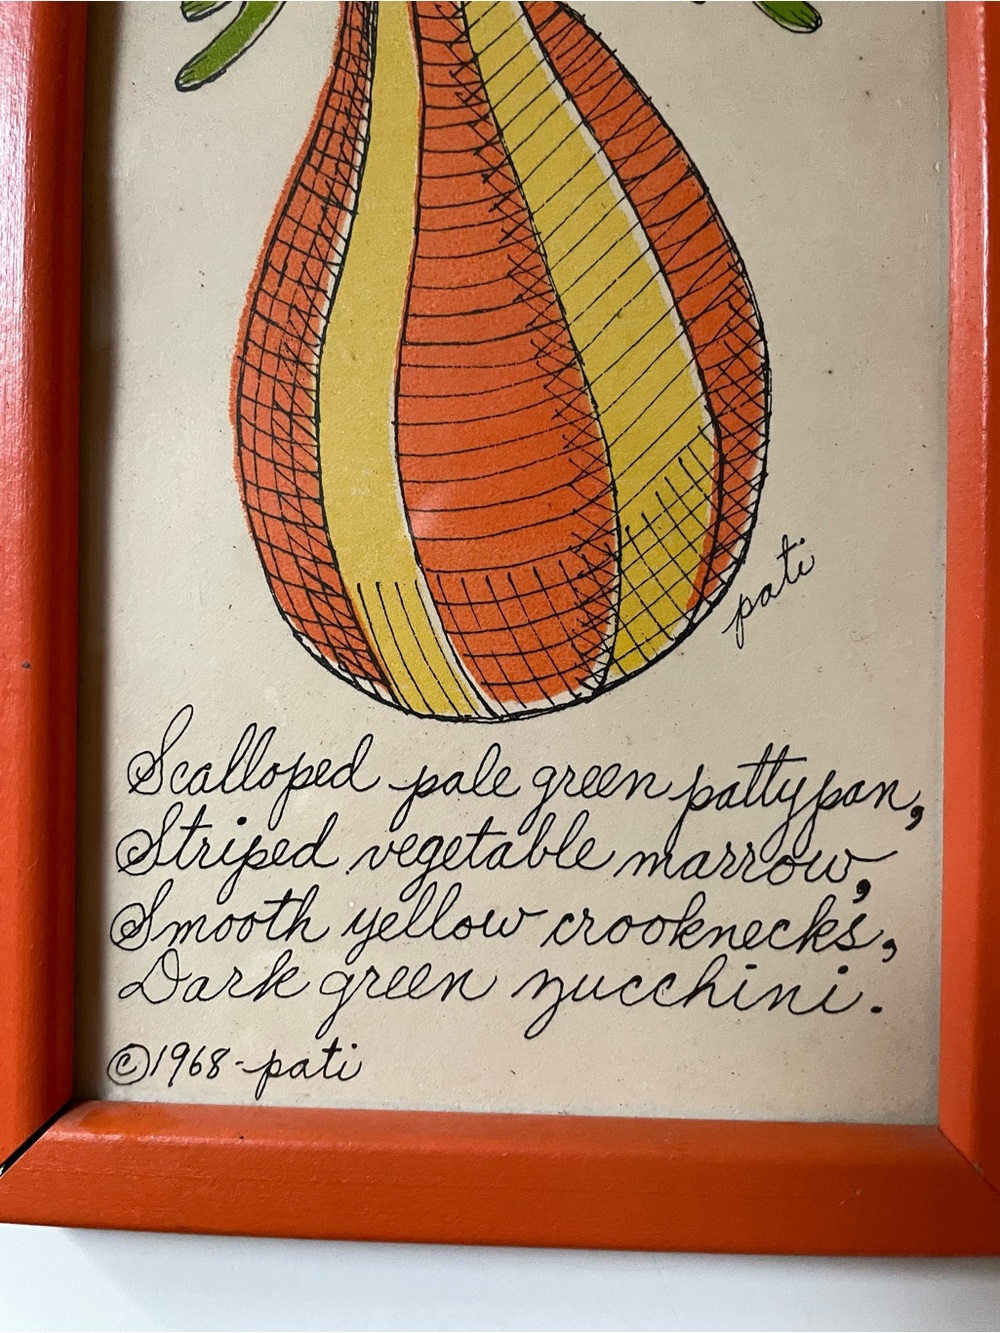 pati
Scalloped pale green pattypan,
Striped vegetable marrow,
Smooth yellow crooknecks,
Dark green zucchini.
©1968-pati